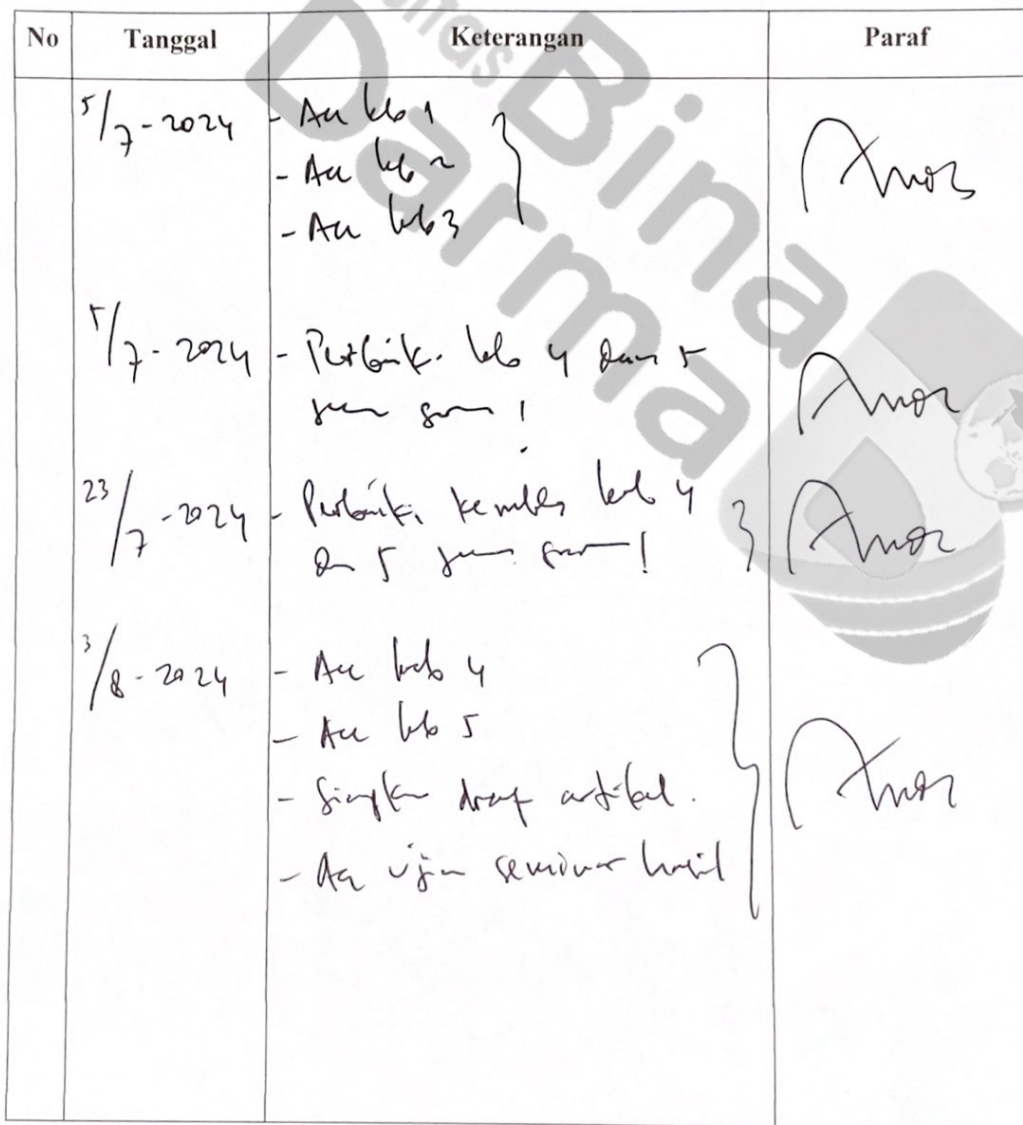 No Tanggal Keterangan Paraf
Bina
Darma
5/7-2024 - Acc bab 1
- Acc bab 2
- Acc bab 3
5/7-2024 - Perbaiki bab 4 dan 5
saran !
23/7-2024 - Perbaiki kembali bab 4
dan 5 saran !
3/8-2024 - Acc bab 4
- Acc bab 5
- Siapkan draf artikel.
- Acc ujian seminar hasil